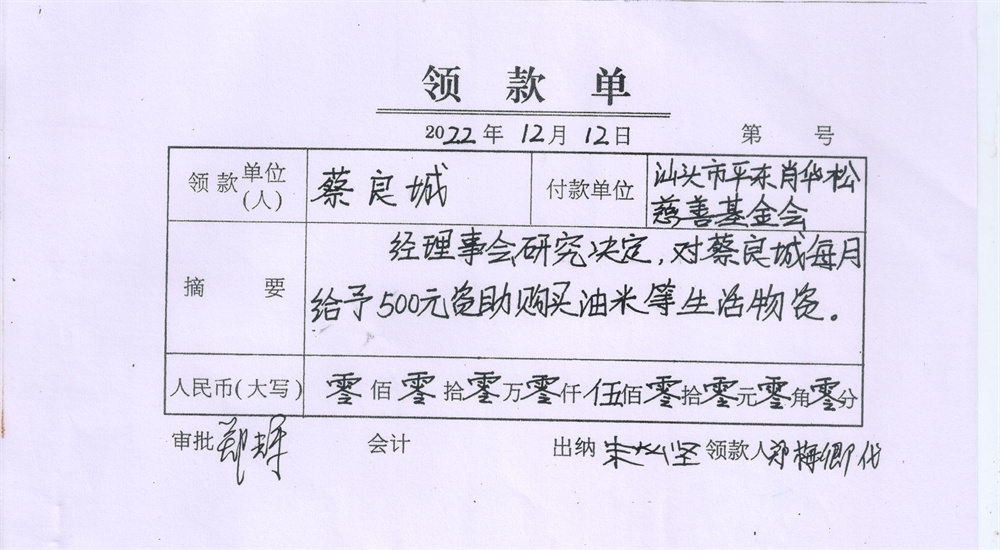 领款单
2022年12月12日 第 号
领款单位(人) 蔡良城 付款单位 汕头市平东肖华松慈善基金会
摘要 经理事会研究决定，对蔡良城每月
给予500元资助购买油米等生活物资。
人民币(大写) 零佰零拾零万零仟伍佰零拾零元零角零分
审批 郑 会计 出纳 领款人 郑梅卿代